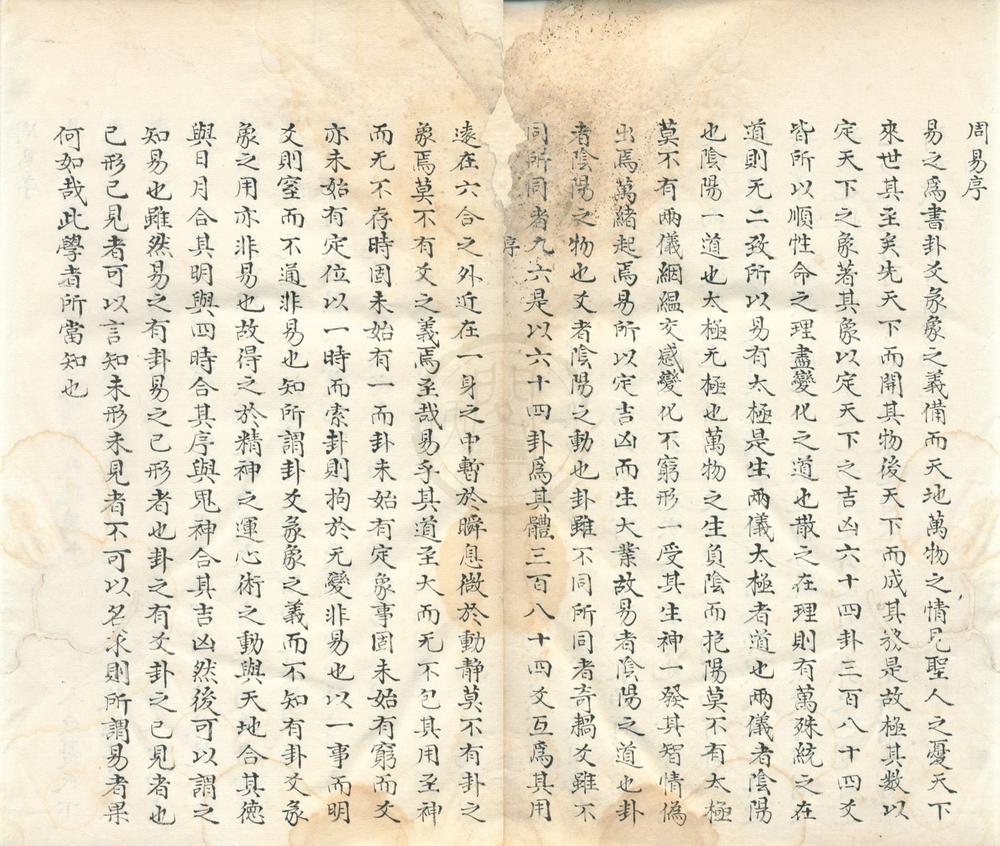 周易序
易之爲書卦爻彖象之義備而天地萬物之情見聖人之憂天下
來世其至矣先天下而開其物後天下而成其務是故極其數以
定天下之象著其象以定天下之吉凶六十四卦三百八十四爻
皆所以順性命之理盡變化之道也散之在理則有萬殊統之在
道則无二致所以易有太極是生兩儀太極者道也兩儀者陰陽
也陰陽一道也太極无極也萬物之生負陰而抱陽莫不有太極
莫不有兩儀絪縕交感變化不窮形一受其生神一發其智情偽
出焉萬緒起焉易所以定吉凶而生大業故易者陰陽之道也卦
者陰陽之物也爻者陰陽之動也卦雖不同所同者奇耦爻雖不
同所同者九六是以六十四卦爲其體三百八十四爻互爲其用
序
遠在六合之外近在一身之中暫於瞬息微於動靜莫不有卦之
象焉莫不有爻之義焉至哉易乎其道至大而无不包其用至神
而无不存時固未始有一而卦未始有定象事固未始有窮而爻
亦未始有定位以一時而索卦則拘於无變非易也以一事而明
爻則窒而不通非易也知所謂卦爻彖象之義而不知有卦爻彖
象之用亦非易也故得之於精神之運心術之動與天地合其德
與日月合其明與四時合其序與鬼神合其吉凶然後可以謂之
知易也雖然易之有卦易之已形者也卦之有爻卦之已見者也
已形已見者可以言知未形未見者不可以名求則所謂易者果
何如哉此學者所當知也